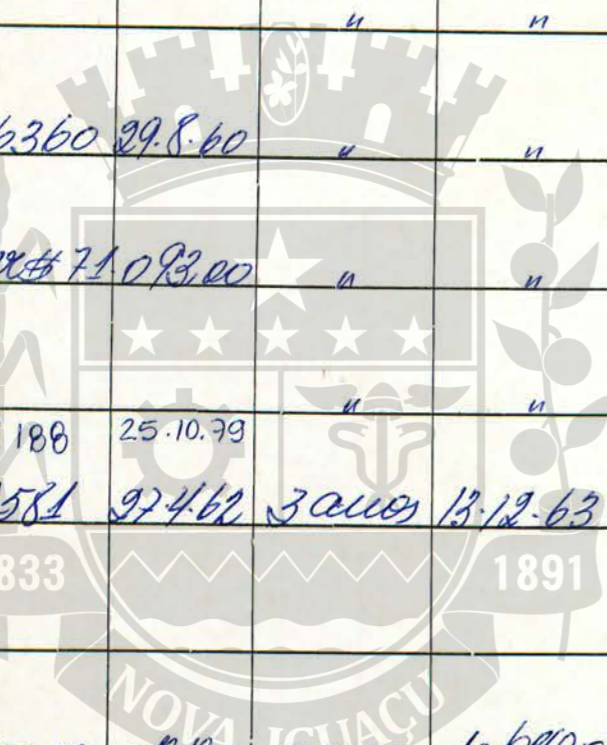 " "
6360 29.8.60 " "
R$ 71.093,00 " "
" "
188 25.10.79
581 27.4.62 3 anos 13.12.63
833 1891
NOVA IGUAÇU